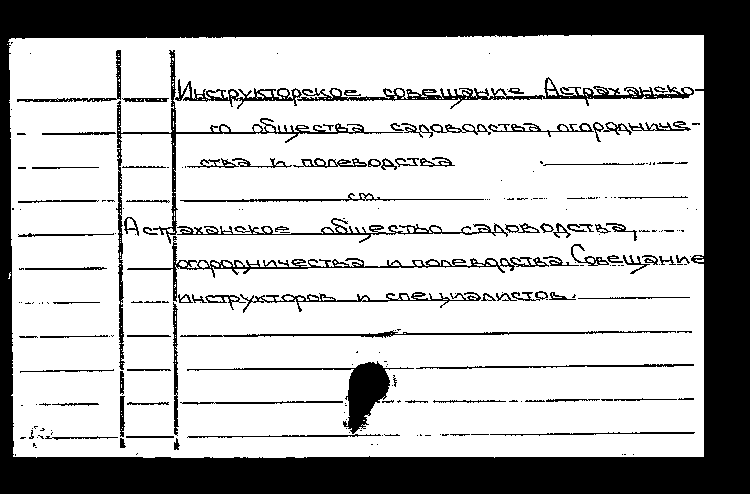 Инструкторское совещание Астраханско-
го общества садоводства, огородниче-
ства и полеводства
см.
Астраханское общество садоводства,
огородничества и полеводства. Совещание
инструкторов и специалистов.